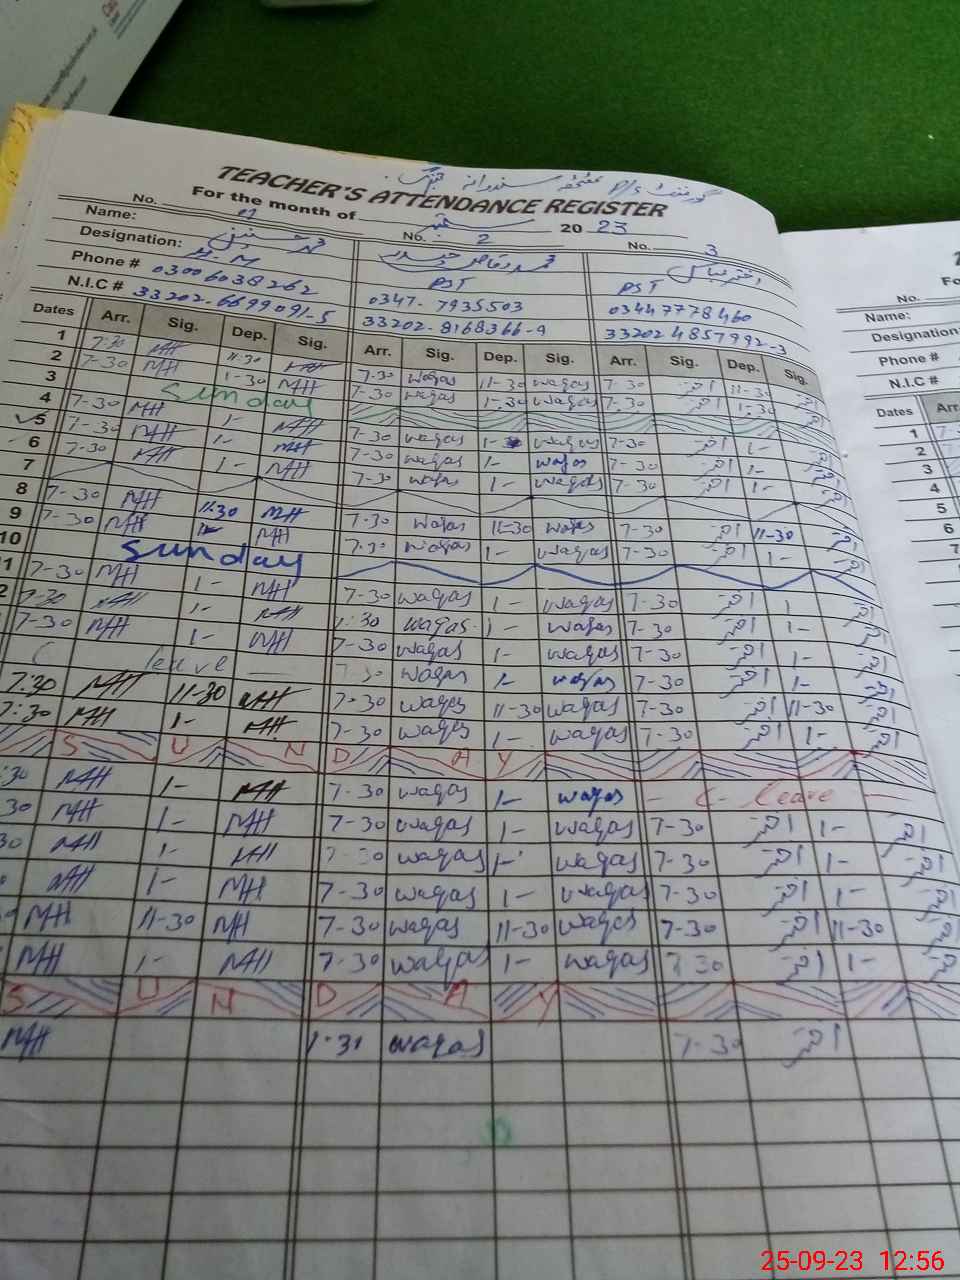 TEACHER'S ATTENDANCE REGISTER
For the month of ستمبر 2023
No. 01 No. 2 No. 3
Name: محمد حسنین محمد وقاص حیدر اختر عباس
Designation: H.M PST PST
Phone # 03006038262 0347-7935503 03447778460
N.I.C # 33202-6699091-5 33202-8168366-9 33202 4857992-3
Dates Arr. Sig. Dep. Sig. Arr. Sig. Dep. Sig. Arr. Sig. Dep. Sig.
1 7-30 MH 11-30 MH 7-30 waqas 11-30 waqas 7-30 اختر 11-30 اختر
2 7-30 MH 1-30 MH 7-30 waqas 1-30 waqas 7-30 اختر 1-30 اختر
3 Sunday
4 7-30 MH 1- MH 7-30 waqas 1- waqas 7-30 اختر 1- اختر
5 7-30 MH 1- MH 7-30 waqas 1- waqas 7-30 اختر 1- اختر
6 7-30 MH 1- MH 7-30 waqas 1- waqas 7-30 اختر 1- اختر
7
8 7-30 MH 11-30 MH 7-30 waqas 11-30 waqas 7-30 اختر 11-30 اختر
9 7-30 MH 1- MH 7-30 waqas 1- waqas 7-30 اختر 1- اختر
10 Sunday
11 7-30 MH 1- MH 7-30 waqas 1- waqas 7-30 اختر 1 اختر
2 7-30 MH 1- MH 7-30 waqas 1- waqas 7-30 اختر 1- اختر
7-30 MH 1- MH 7-30 waqas 1- waqas 7-30 اختر 1- اختر
C leave 7-30 waqas 1- waqas 7-30 اختر 1- اختر
7:30 MH 11-30 MH 7-30 waqas 11-30 waqas 7-30 اختر 11-30 اختر
7:30 MH 1- MH 7-30 waqas 1- waqas 7-30 اختر 1- اختر
S U N D A Y
:30 MH 1- MH 7-30 waqas 1- waqas - C- leave -
30 MH 1- MH 7-30 waqas 1- waqas 7-30 اختر 1- اختر
30 MH 1- MH 7-30 waqas 1- waqas 7-30 اختر 1- اختر
MH 1- MH 7-30 waqas 1- waqas 7-30 اختر 1- اختر
MH 11-30 MH 7-30 waqas 11-30 waqas 7-30 اختر 11-30 اختر
MH 1- MH 7-30 waqas 1- waqas 7-30 اختر 1- اختر
S U N D A Y
MH 7-30 waqas 7-30 اختر
No.
Name:
Designation:
Phone #
N.I.C #
Dates Arr.
1
2
3
4
5
6
7
25-09-23 12:56